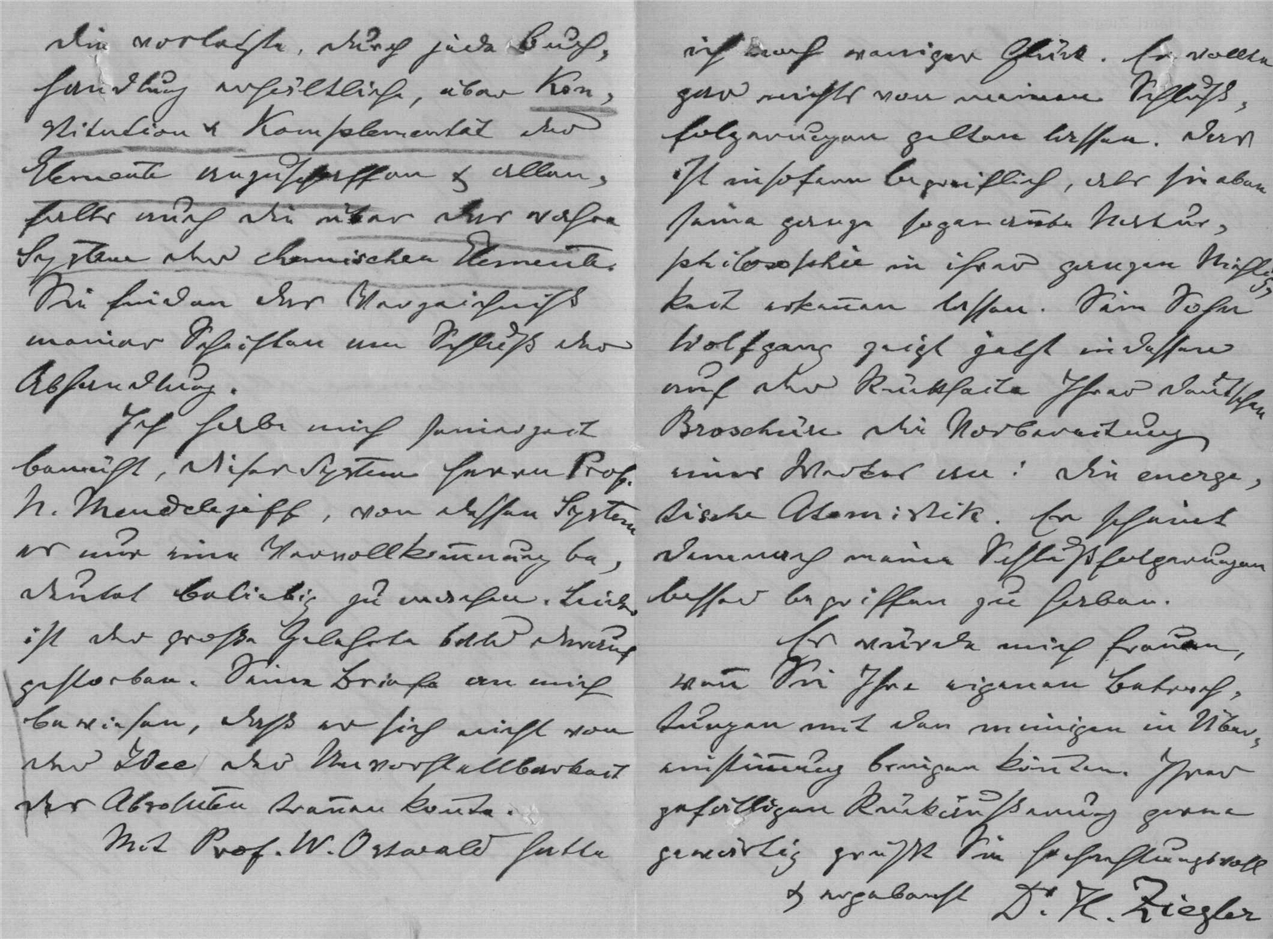 die vorletzte, durch jede Buch-
handlung erhältliche, über Kon-
stitution & Komplementät der
Elemente anzuschaffen & allen-
falls auch die über das wahre
System der chemischen Elemente.
Sie finden das Verzeichniß
meiner Schriften am Schluß der
Abhandlung.
Ich habe mich seinerzeit
bemüht, dieses System Herrn Prof.
N. Mendelejeff, von dessen System
es nur eine Vervollkom̅nung be-
deutet beliebig zu machen. Leider
ist der große Gelehrte bald darauf
gestorben. Seine Briefe an mich
bewiesen, daß er sich nicht von
der Idee der Unvorstellbarkeit
des Absoluten tren̅en kon̅te.
Mit Prof. W. Ostwald hatte
ich noch weniger Glück. Er wollte
gar nichts von meinen Schluß-
folgerungen gelten lassen. Das
ist insofern begreiflich, als sie eben
seine ganze sogenan̅te Natur-
philosophie in ihrer ganzen Nichtig-
keit erken̅en lassen. Sein Sohn
Wolfgang zeigt jetzt indessen
auf der Rückseite Ihrer deutschen
Broschüre die Vorbereitung
eines Werkes an: die energe-
tische Atomistik. Er scheint
demnach meine Schlußfolgerungen
besser begriffen zu haben.
Es würde mich freuen,
wen̅ Sie Ihre eigenen Betrach-
tungen mit den meinigen in Über-
einstim̅ung bringen kön̅ten. Ihrer
gefälligen Rückäußerung gerne
gewärtig grüßt Sie hochachtungsvoll
& ergebenst Dr. H. Ziegler